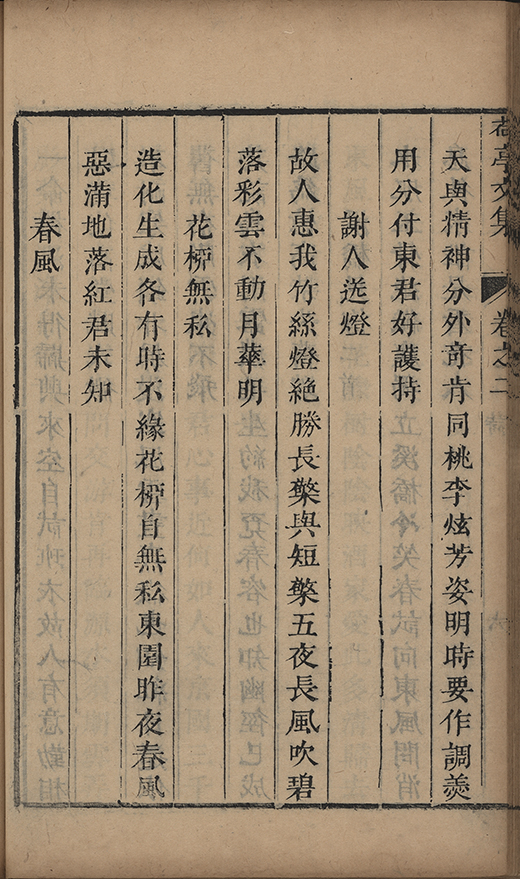 荷亭文集 卷之二
天與精神分外奇肯同桃李炫芳姿明時要作調羹
用分付東君好護持
謝人送燈
故人惠我竹絲燈絶勝長檠與短檠五夜長風吹碧
落彩雲不動月華明
花柳無私
造化生成各有時不緣花柳自無私東園昨夜春風
惡滿地落紅君未知
春風